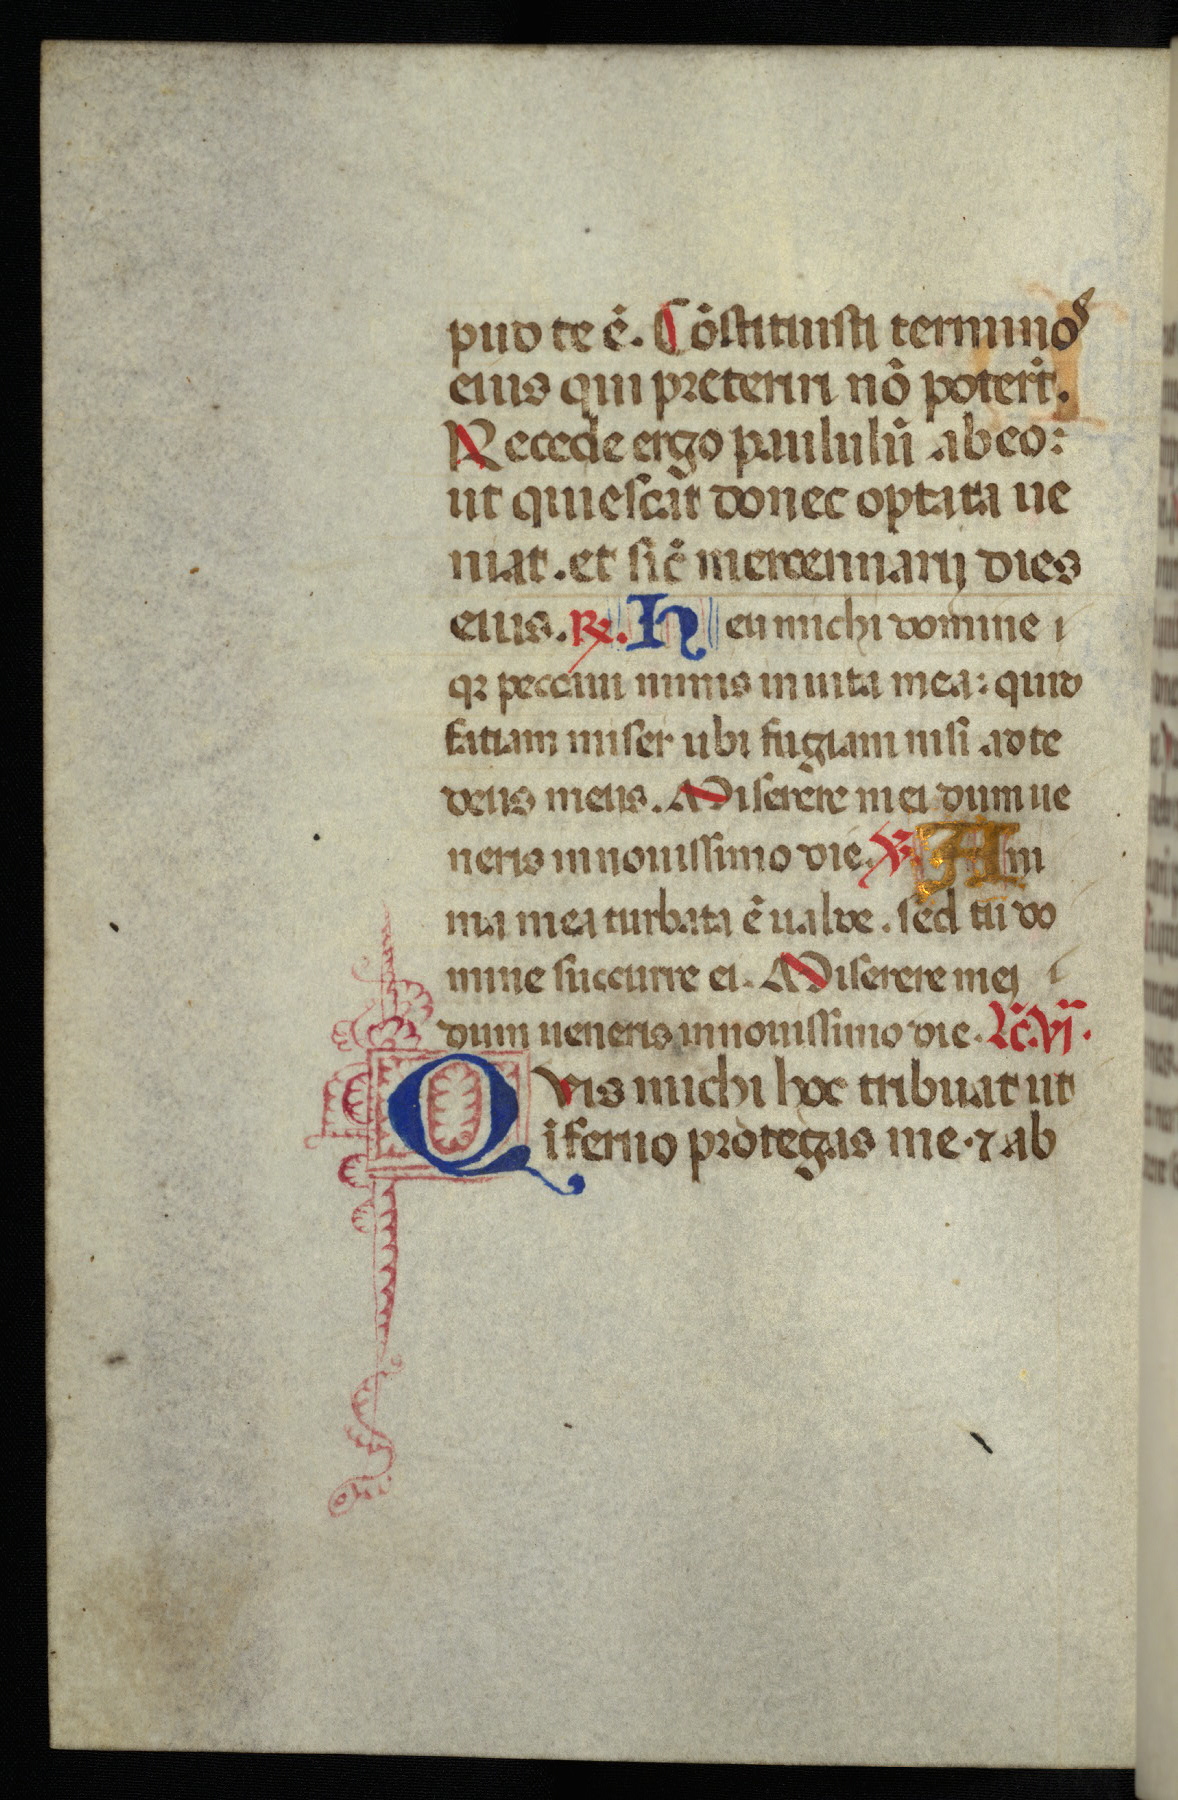 pud te ē. Cōstituisti terminos
eius qui preteriri nō poterūt.
Recede ergo paululū ab eo:
ut quiescat donec optata ue
niat. et sic̄ mercennarij dies
eius. ℟. Heu michi domine
qꝛ peccaui nimis in uita mea: quid
fatiam miser ubi fugiam nisi ad te
deus meus. Miserere mei dum ue
neris in nouissimo die. ℣. Ani
ma mea turbata ē ualde. sed tu do
mine succurre ei. Miserere mei
dum ueneris in nouissimo die. Lc̄. VI.
Qvis michi hoc tribuat ut
īferno protegas me. ⁊ ab